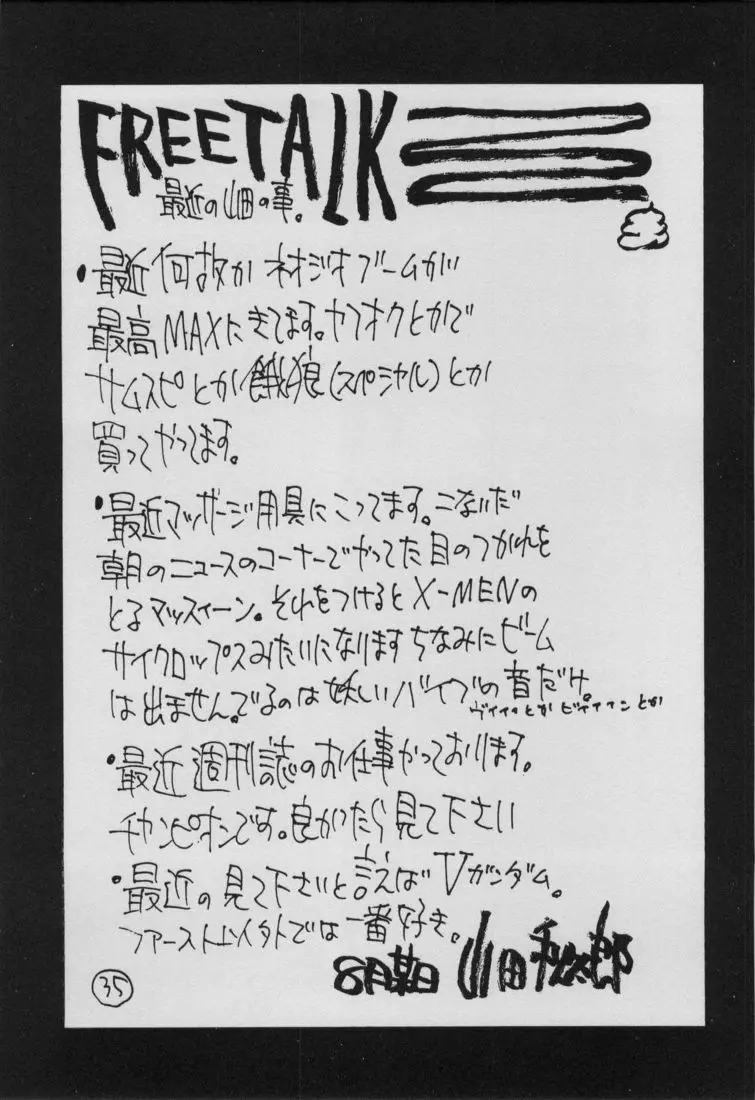 FREETALK
最近の山田の事。
・最近何故かネオジオブームが
最高MAXにきてます。ヤフオクとかで
サムスピとか餓狼(スペシャル)とか
買ってやってます。
・最近マッサージ用具にこってます。こないだ
朝のニュースのコーナーでやってた目のつかれを
とるマッスィーン。それをつけるとX-MENの
サイクロップスみたいになりますちなみにビーム
は出ません。でるのは妖しいバイブの音だけ。
ヴイイイとかビイイイインとか
・最近週刊誌のお仕事やっております。
チャンピオンです。良かったら見て下さい
・最近の見て下さいと言えばVガンダム。
ファースト以外では一番好き。
8月某日 山田
35